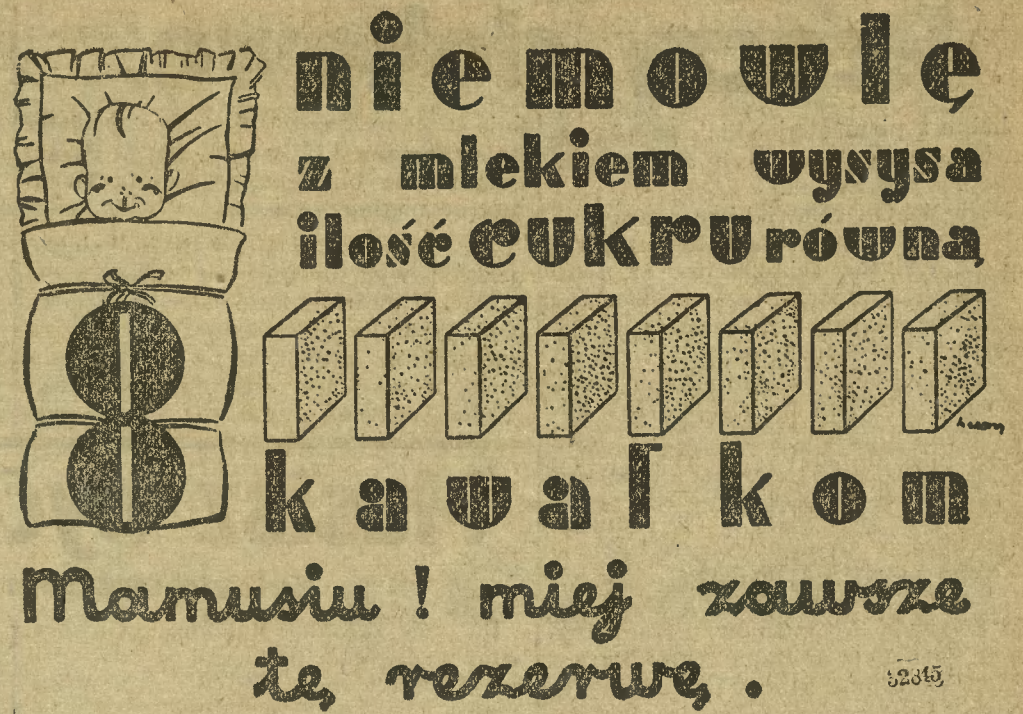 niemowlę
z mlekiem wysysa
ilość cukru równą
8
kawałkom
Mamusiu! miej zawsze
tę rezerwę.
52815